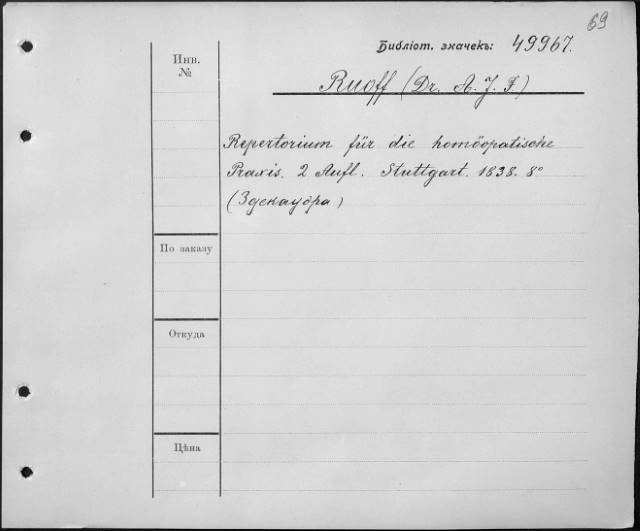 69
Библіот. значекъ: 49967.
Инв.
№
Ruoff (Dr. A. J. F)
Repertorium für die homöopatische
Praxis. 2 Aufl. Stuttgart. 1838. 8°
(Здекауэра)
По заказу
Откуда
Цѣна